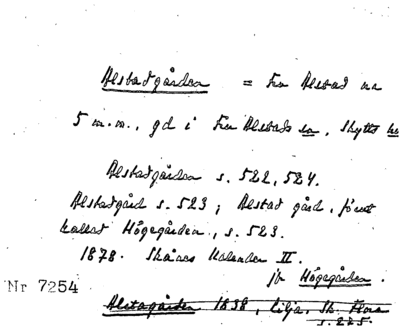 Alstadgården = Fru Alstad nr
5 m.m., gd i Fru Alstads sn, Skytts hd
Alstadgården s. 522, 524.
Alstadgård s. 523; Alstad gård, förut
kallad Högegården, s. 523.
1878. Skånes Kalender II.
jfr Högegården.
Nr 7254
Alstagården 1838, Lilja, Sk. Flora
s. 225.